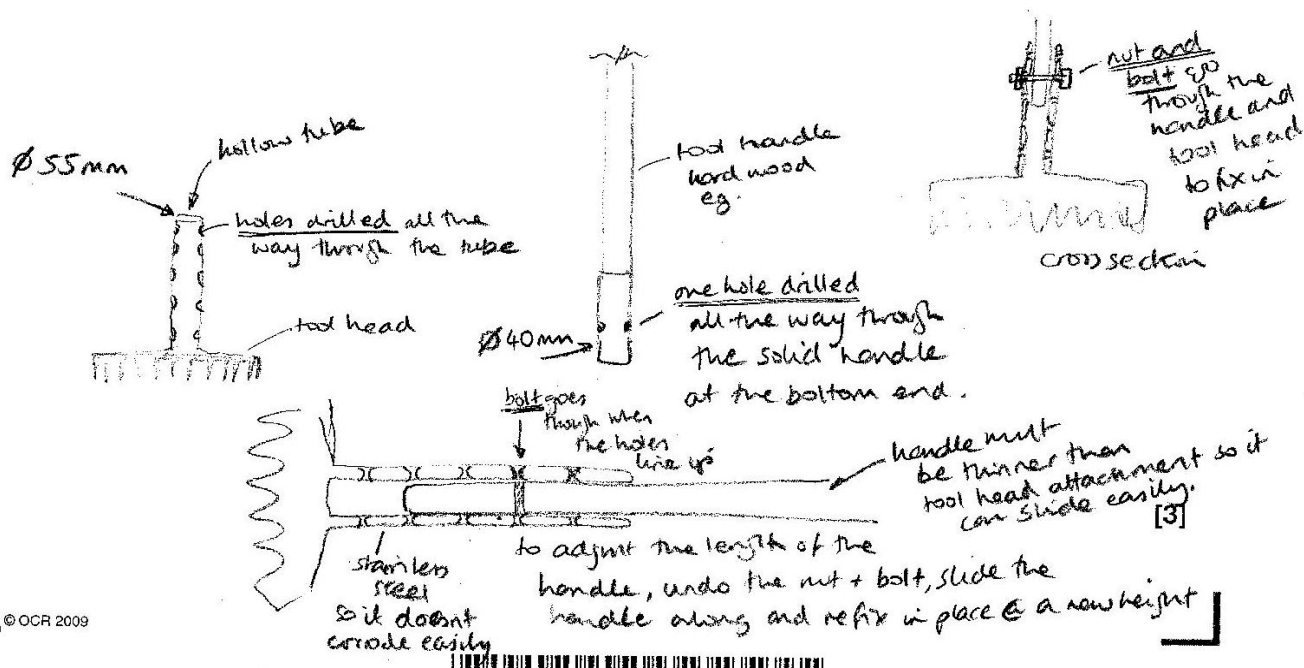 Ø 55mm
hollow tube
holes drilled all the
way through the tube
tool head
tool handle
hard wood
eg.
one hole drilled
all the way through
the solid handle
at the bottom end.
Ø40mm
nut and
bolt go
through the
handle and
tool head
to fix in
place
cross section
bolt goes
though when
the holes
line up
handle must
be thinner than
tool head attachment so it
can slide easily.
[3]
stainless
steel
so it doesnt
corrode easily
to adjust the length of the
handle, undo the nut + bolt, slide the
handle along and refix in place @ a new height
© OCR 2009